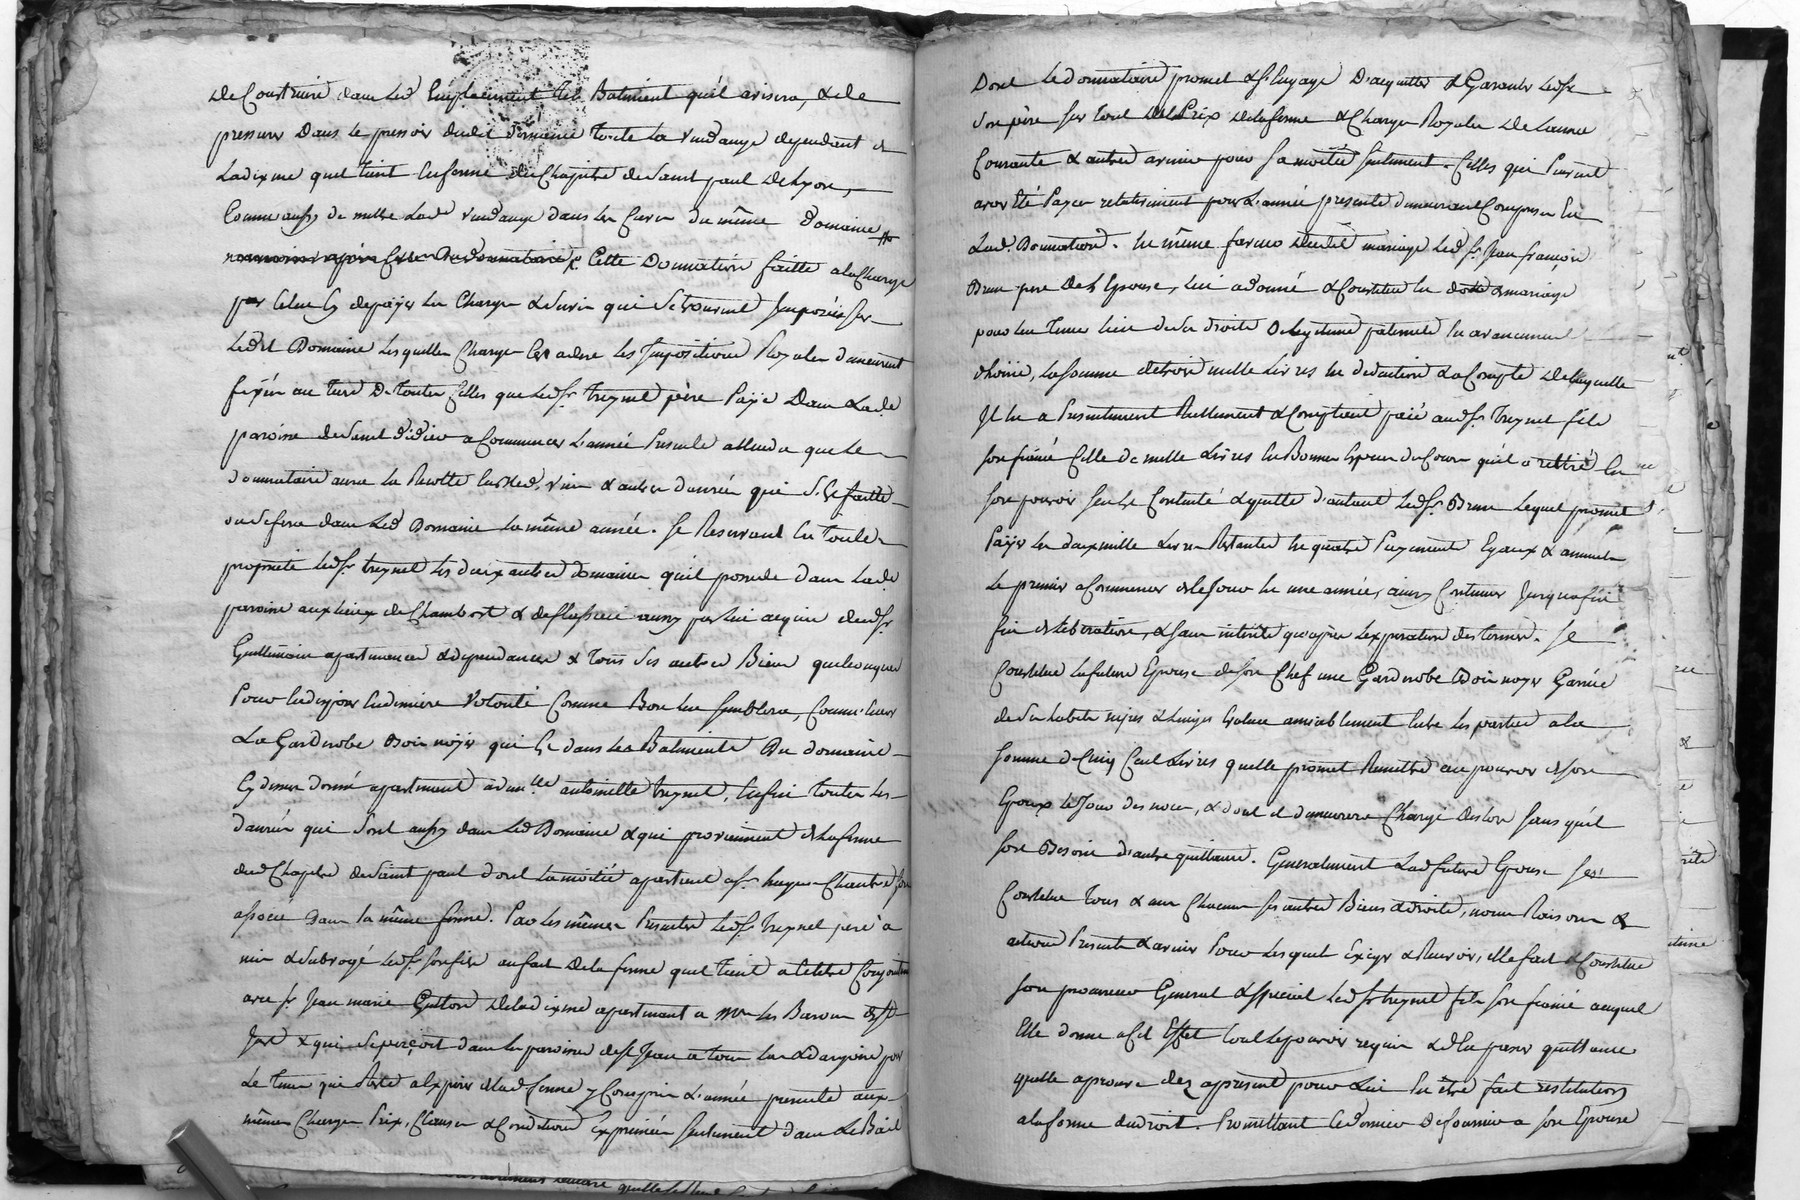 de Construire dans led Emplacement tel Batiment qu'il avisera, & de
pressurer dans le pressoir dudit domaine toute la vendange dependant de
Ladixme quel tient enferme du Chapitre de saint paul de Lyon,
Comme aussy de mettre lade vendange dans les Cuves du même domaine
Cette Donnation faitte alacharge
par celuy cy depayer les Charges & servis qui setrouvent Imposées sur
Ledit Domaine lesquelles Charges les Impositions Royales demeurent
fixées au tiers de toutes celles que ledsr treynet père Paÿe dans lade
paroisse desaint didier acommencer L'année Presente attendu que le
donnataire aura la Recolte enbled, vin & autres danrées qui sest faitte
ousefera dans led Domaine la même année. Se Reservant en toute
proprieté ledsr treynet les deux autres domaines quil possede dans lade
paroisse aux lieux de Chambort & aussy par lui acquis dudsr
Guillemain apartenances & dependances & tous ses autres Biens quelconques
Pour endisposer enderniere volonté Comme Bon lui semblera, Comme aussy
La Garderobe Bois noyer qui est dans les Batiments du domaine
Cy dessus donné apartenant a demlle antoinette treynet, Enfin toutes les
danrées qui sont aussy dans led Domaine & qui proviennent delaferme
dud Chapitre desaint paul dont lamoitié apartient asr hugues Chantre son
associé dans la même ferme. Par les mêmes Presentes ledsr treynet pere a
mis & subrogé ledsr son fils aufait de la ferme quil tient atitre Conjointement
avec sr Jean marie deladixme apartenant a mrs les Barons de st
Just & qui seperçoit dans la paroisse de st Jean a pour
le tems qui Reste a Expirer delad ferme y Compris L'année presente aux
mêmes Charges Prix, Clauses & Conditions Exprimées seulement dans le Bail
Dont le donnataire promet & s'Engage D'acquitter & Garantir ledsr
son père sur tout du Prix delaferme & Charges Royales de Lannée
Courante & autres avenir pour sa moitié seulement. Celles qui Peuvent
avoir été Payées relativement pour L'année presente demeurant Comprises En
Lad. Donnation. En même faveur dudit mariage led sr Jean françois
Brun pere de l'Epouse, lui adonné & Constitué en dote & mariage
pour lui tenir lieu de ses droits paternels en avancement
d'hoirie, la somme detrois mille Livres en deduction & acompte de laquelle
Il en a Presentement Reellement & Comptant paié audsr treynet fils
son fiancé Celle de mille Livres en Bonnes Especes du Cours qu'il a retiré en
son pouvoir & quitte d'autant ledsr Brun lequel promet
Paÿer les deux mille Livres Restantes en quatre Payements Egaux & annuels
le premier a Commencer decejour en une année, ainsy Continuer Jusquafin
fin deliberation, & sans interêts qu'aprés L'expiration destermes. Se
Constitue lafuture Epouse de son Chef une Garderobe Bois noyer Garnie
de ses habits nipes & linges Evalués amiablement Entre les parties a la
somme de Cinq Cent Livres quelle promet Remettre au pouvoir deson
Epoux le Jour des noces, & dont il demeurera Chargé deslors sans qu'il
soit Besoin d'autre quittance. Generalement Lad future Epouse sest
Constitué tous & un Chacun ses autres Biens & droits, noms Raisons &
actions Presents & avenir Pour lesquels Exiger & Recevoir, elle fait & Constitue
son procureur General & special Ledsr treynet fils son fiancé auquel
Elle donne acet Effet tout lepouvoir requis & de passer quittance
quelle aprouve dez apresent pour Lui En être fait restitution
alaforme dudroit. Promettant ledernier deffournir a son Epouse